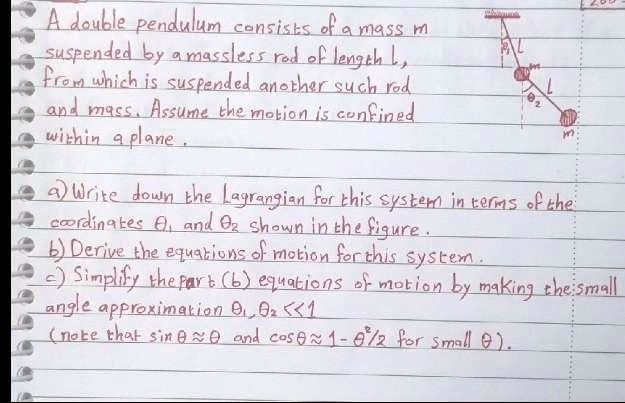 A double pendulum consists of a mass m
suspended by a massless rod of length L,
from which is suspended another such rod
and mass. Assume the motion is confined
within a plane.
θ₁ L
m
L
θ₂
m
a) Write down the Lagrangian for this system in terms of the
coordinates θ₁ and θ₂ shown in the figure.
b) Derive the equations of motion for this system.
c) Simplify the part (b) equations of motion by making the small
angle approximation θ₁, θ₂ <<1
(note that sin θ ≈ θ and cos θ ≈ 1 - θ²/2 for small θ).